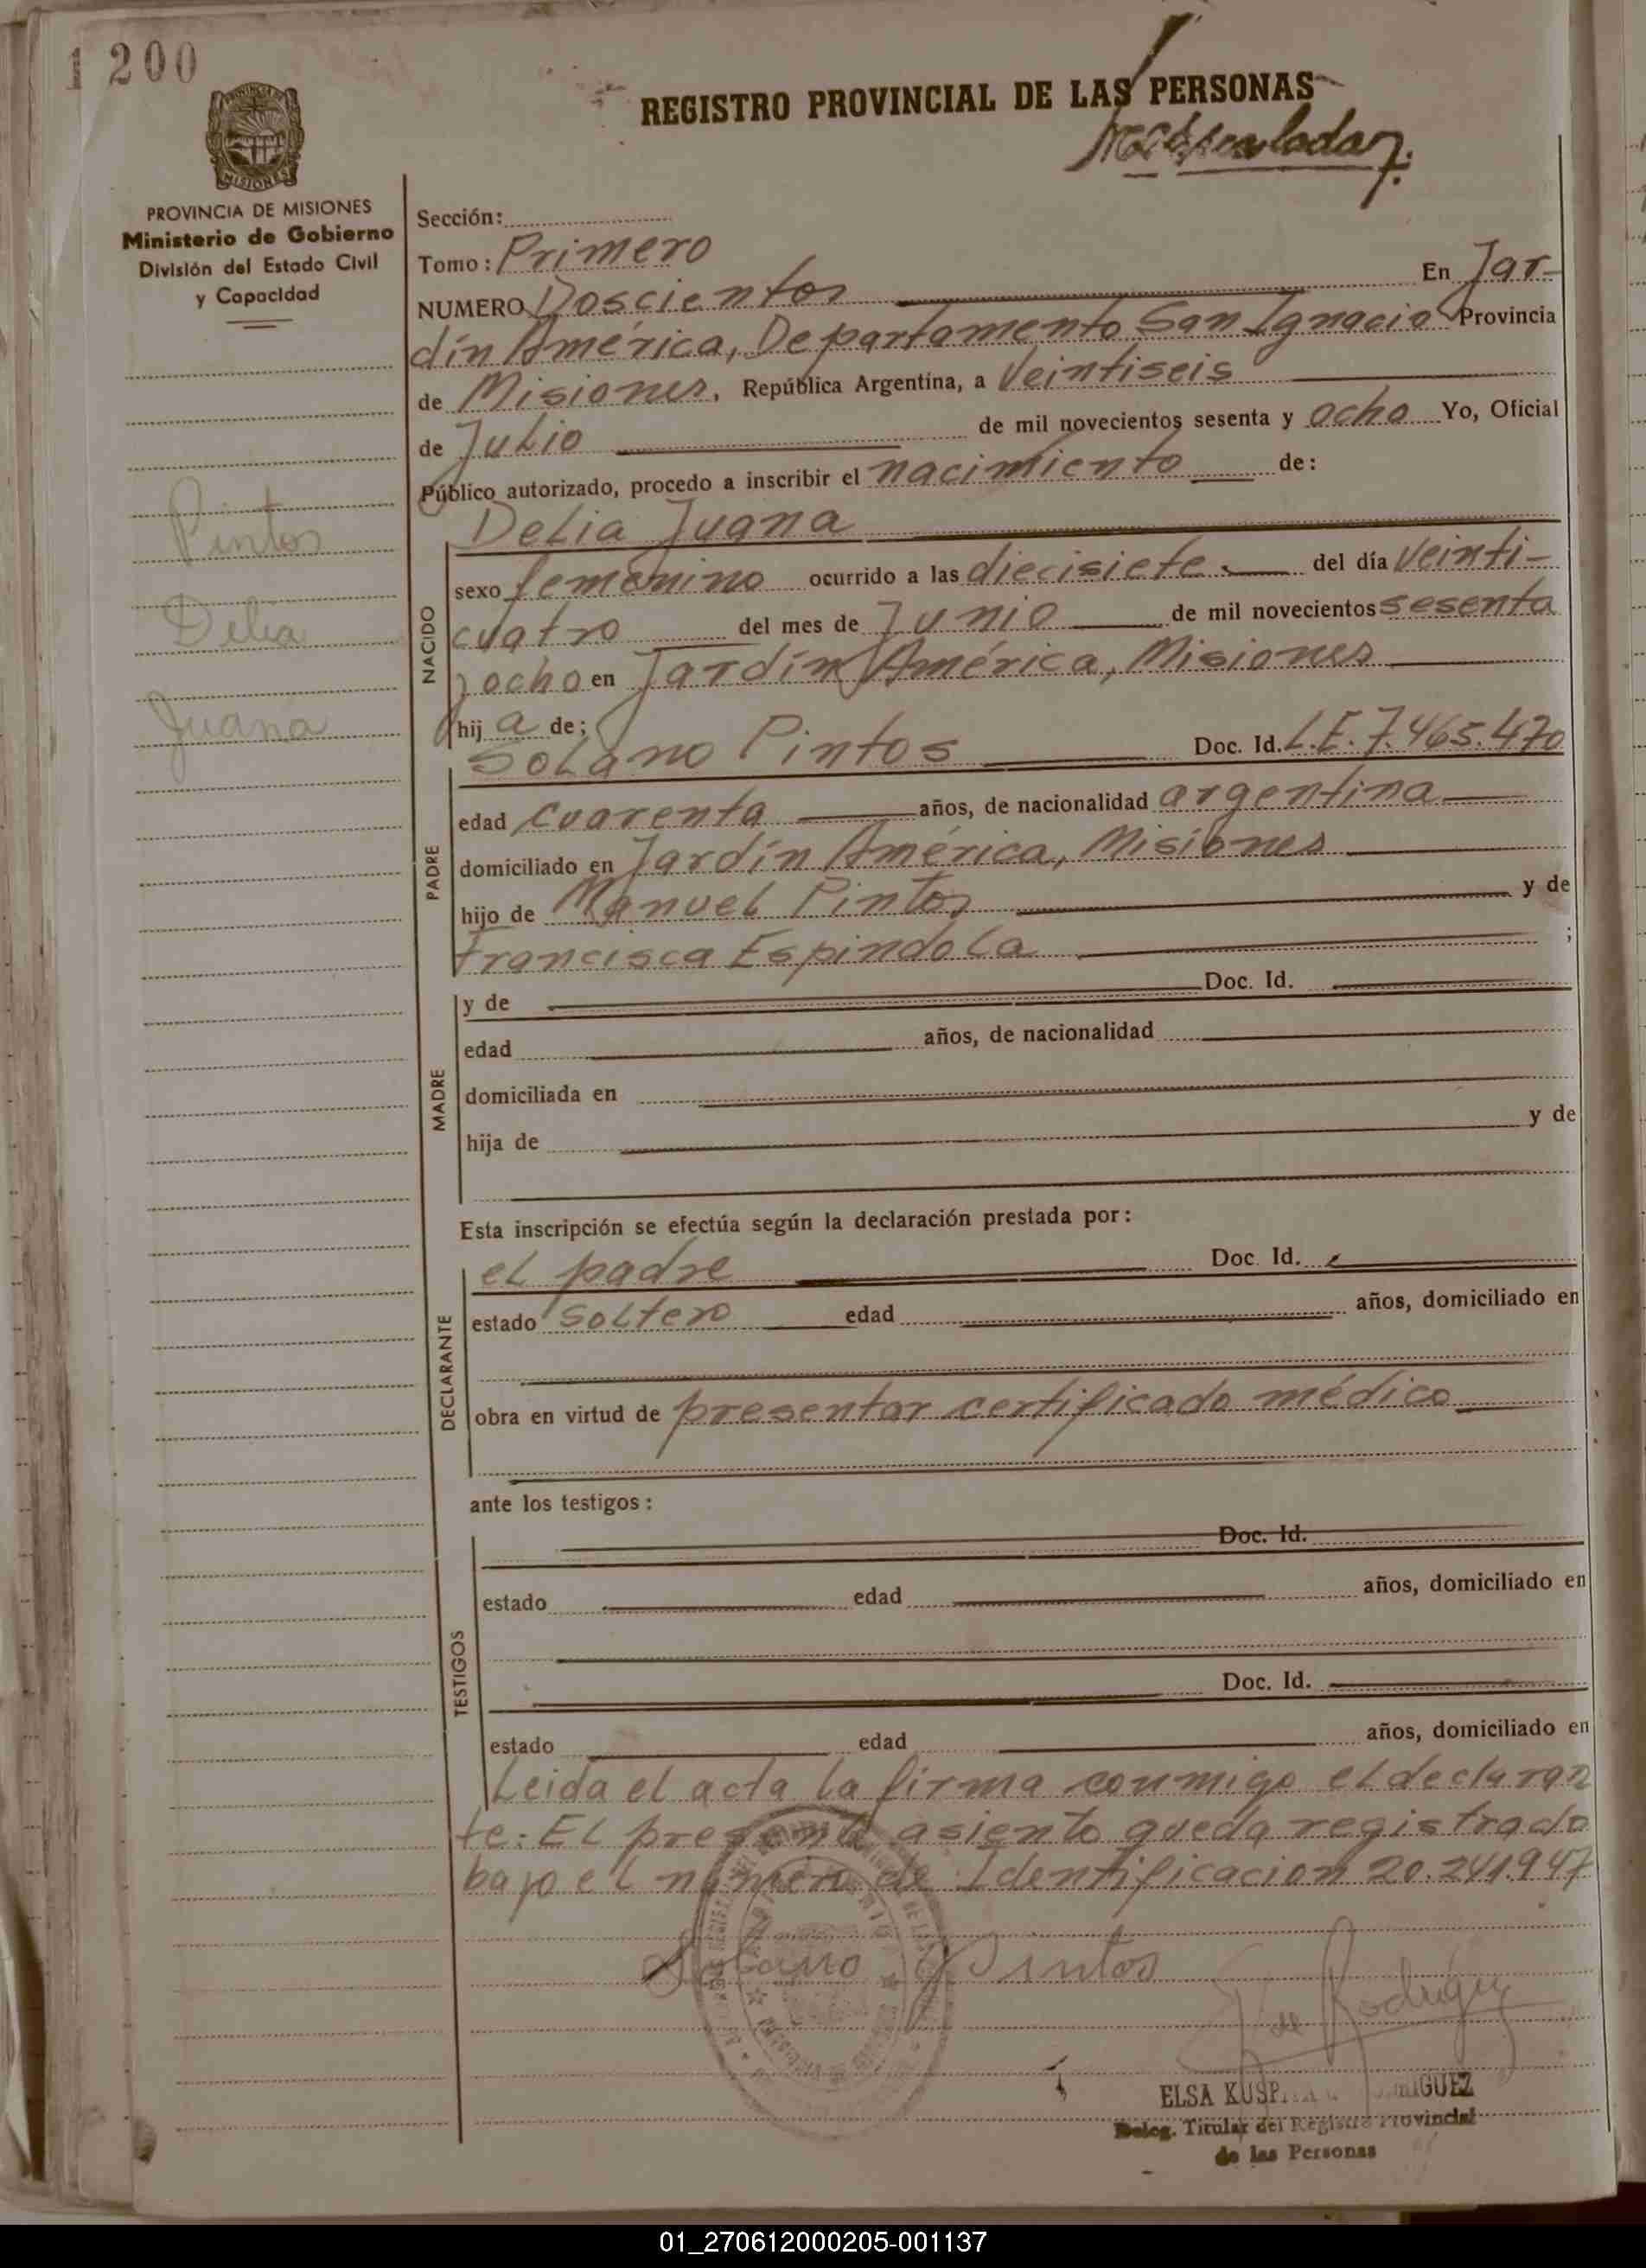 1 200
REGISTRO PROVINCIAL DE LAS PERSONAS
MISIONES
PROVINCIA DE MISIONES
Ministerio de Gobierno
División del Estado Civil
y Capacidad
Sección:
Tomo: Primero
NUMERO Doscientos En Jar-
dín América, Departamento San Ignacio Provincia
de Misiones, República Argentina, a Veintiseis
de Julio de mil novecientos sesenta y ocho Yo, Oficial
Público autorizado, procedo a inscribir el nacimiento de:
Pintos
Delia
Juana
Delia Juana
NACIDO
sexo femenino ocurrido a las diecisiete del día Veinti-
cuatro del mes de Junio de mil novecientos sesenta
y ocho en Jardín América, Misiones
hij a de;
Solano Pintos Doc. Id. L.E. 7.465.470
PADRE
edad cuarenta años, de nacionalidad argentina
domiciliado en Jardín América, Misiones
hijo de Manuel Pintos y de
Francisca Espindola ;
MADRE
y de Doc. Id.
edad años, de nacionalidad
domiciliada en
hija de y de
Esta inscripción se efectúa según la declaración prestada por:
DECLARANTE
el padre Doc. Id.
estado soltero edad años, domiciliado en
obra en virtud de presentar certificado médico
ante los testigos:
TESTIGOS
Doc. Id.
estado edad años, domiciliado en
Doc. Id.
estado edad años, domiciliado en
Leida el acta la firma conmigo el declaran
te. El presente asiento queda registrado
bajo el número de Identificacion 20.241.947
Solano Pintos
de Rodríguez
ELSA
Deleg. Titular del Registro Provincial
de las Personas
01_270612000205-001137